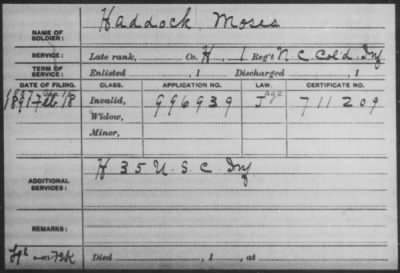 Haddock, Moses
NAME OF SOLDIER:
SERVICE: Late rank, Co. H, 1 Reg't N.C. Col'd Inf
TERM OF SERVICE: Enlisted , 1 Discharged , 1
DATE OF FILING. CLASS. APPLICATION NO. LAW. CERTIFICATE NO.
1891 Feb. 18 Invalid, 996939 J 711209
Widow,
Minor,
ADDITIONAL SERVICES: H 35 U.S.C Inf
REMARKS:
Died , 1 , at